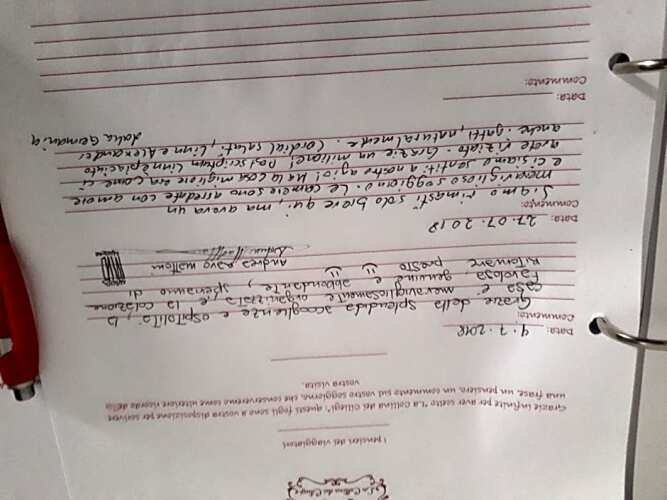 La Collina dei Ciliegi
I pensieri dei viaggiatori
Grazie infinite per aver scelto "La Collina dei Ciliegi", questi fogli sono a vostra disposizione per scrivere
una frase, un pensiero, un commento sul vostro soggiorno, che conserveremo come ulteriore ricordo della
vostra visita.
Data: 9.7.2018
Commento:
Grazie della splendida accoglienza e ospitalità, la
casa è meravigliosamente organizzata, e la colazione
favolosa, genuina e abbondante, speriamo di
ritornare presto
Andrea Ravo Mattoni
Data: 27.07.2018
Commento:
Siamo rimasti solo breve qui, ma avava un
meraviglioso soggiorno. Le camere sono arredate con amore
e ci siamo sentiti a nostro agio! Ma la cosa migliore era come ci
avete viziato. Grazie un milione! Postscriptum: Linn è piaciuto
anche gatti, naturalmente. Cordial saluti, Linn e Alexander
dalla Germania
Data:
Commento: